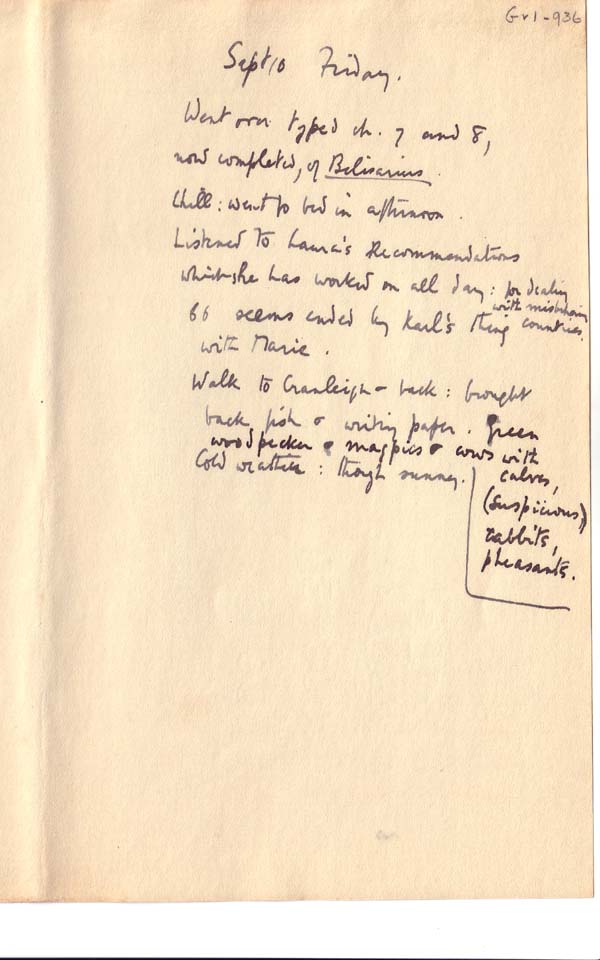 Gv1-936
Sept 10 Friday.
Went over typed ch. 7 and 8,
now completed, of Belisarius.
Chill: went to bed in afternoon.
Listened to Laura's Recommendations
which she has worked on all day: for dealing
with misbehaving
66 seems ended by Karl's thing countries.
with Marie.
Walk to Cranleigh & back: brought
back fish & writing paper. Green
woodpecker & magpies & cows with
calves,
Cold weather: though sunny.
(suspicious)
rabbits,
pheasants.